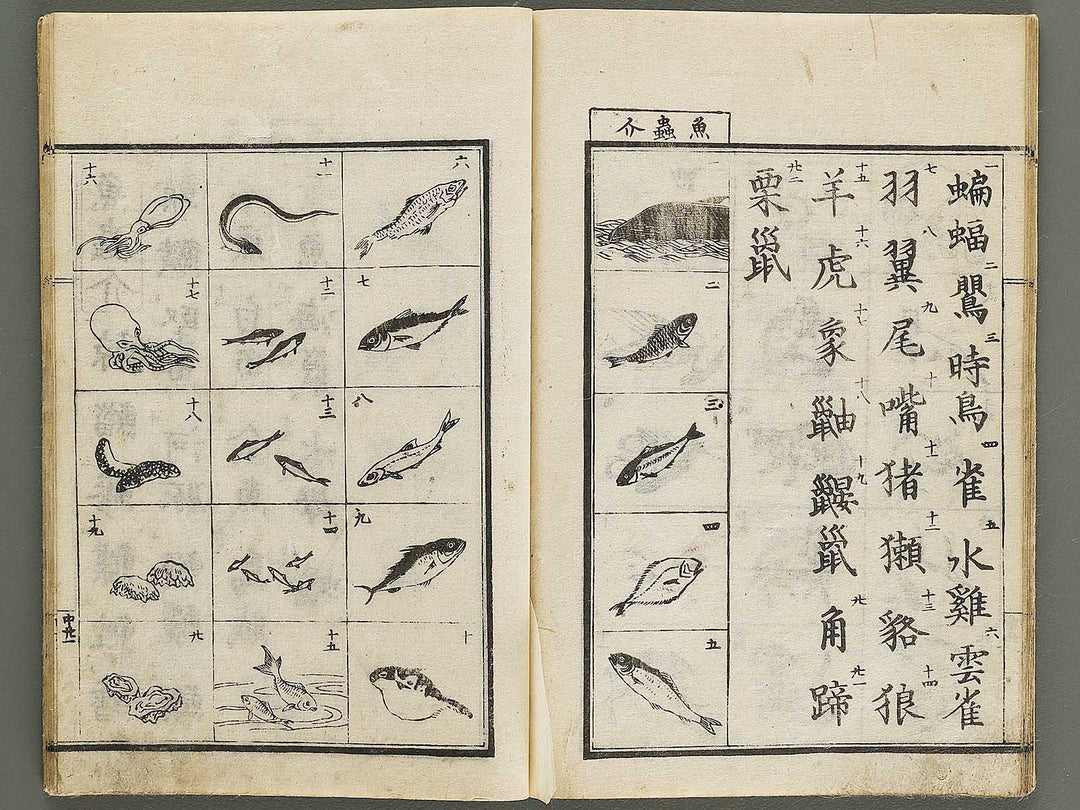 魚蟲介
一 蝙蝠 二 鸎 三 時鳥 四 雀 五 水雞 六 雲雀
七 羽 八 翼 九 尾 十 嘴 十一 猪 十二 獺 十三 貉 十四 狼
十五 羊 十六 虎 十七 象 十八 鼬 十九 鼴鼠 廿 角 廿一 蹄
廿二 栗鼠
一
二
三
四
五
六
七
八
九
十
十一
十二
十三
十四
十五
十六
十七
十八
十九
廿
中廿一